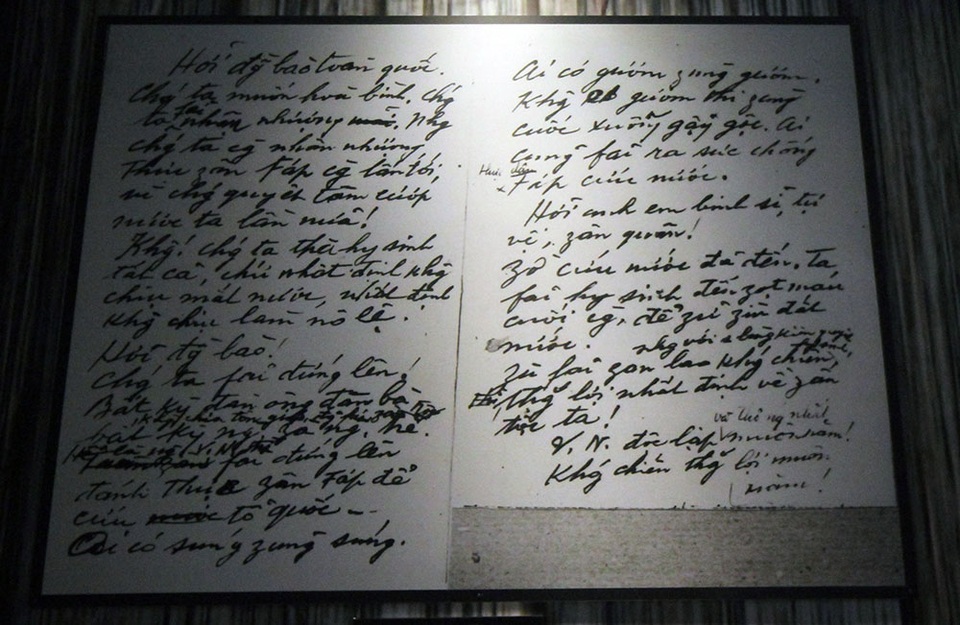 Hỡi đg̀ bào toàn quốc.
Chúg ta muốn hoà bình, chúg
ta fải nhân nhượng. Nhg
chúg ta cg̀ nhân nhượng
Thực zân Fáp cg̀ lấn tới,
vì chúg quyết tâm cướp
nước ta lần nữa!
Khg! chúg ta thà hy sinh
tất cả, chứ nhất định khg
chịu mất nước, nhất định
khg chịu làm nô lệ!
Hỡi đg̀ bào!
Chúg ta fải đứng lên!
Bất kỳ đàn ông đàn bà
bất kỳ ng. già ng. trẻ.
fải đứng lên
đánh Thực zân Fáp để
cứu tổ quốc
Ai có súng zùng súng.
Ai có gươm zùng gươm.
Khg có gươm thì zùng
cuốc xuổng gậy gộc. Ai
cũng fải ra sức chống
thực dân
Fáp cứu nước.
Hỡi anh em binh sĩ, tự
vệ, zân quân!
Zờ cứu nước đã đến. Ta
fải hy sinh đến zọt máu
cuối cg̀, để zữ zìn đất
nước.
Zù fải zan lao kháng chiến,
thắg lợi nhất định về zân
tộc ta!
V. N. độc lập muôn năm!
Kháng chiến thắg lợi muôn
năm!